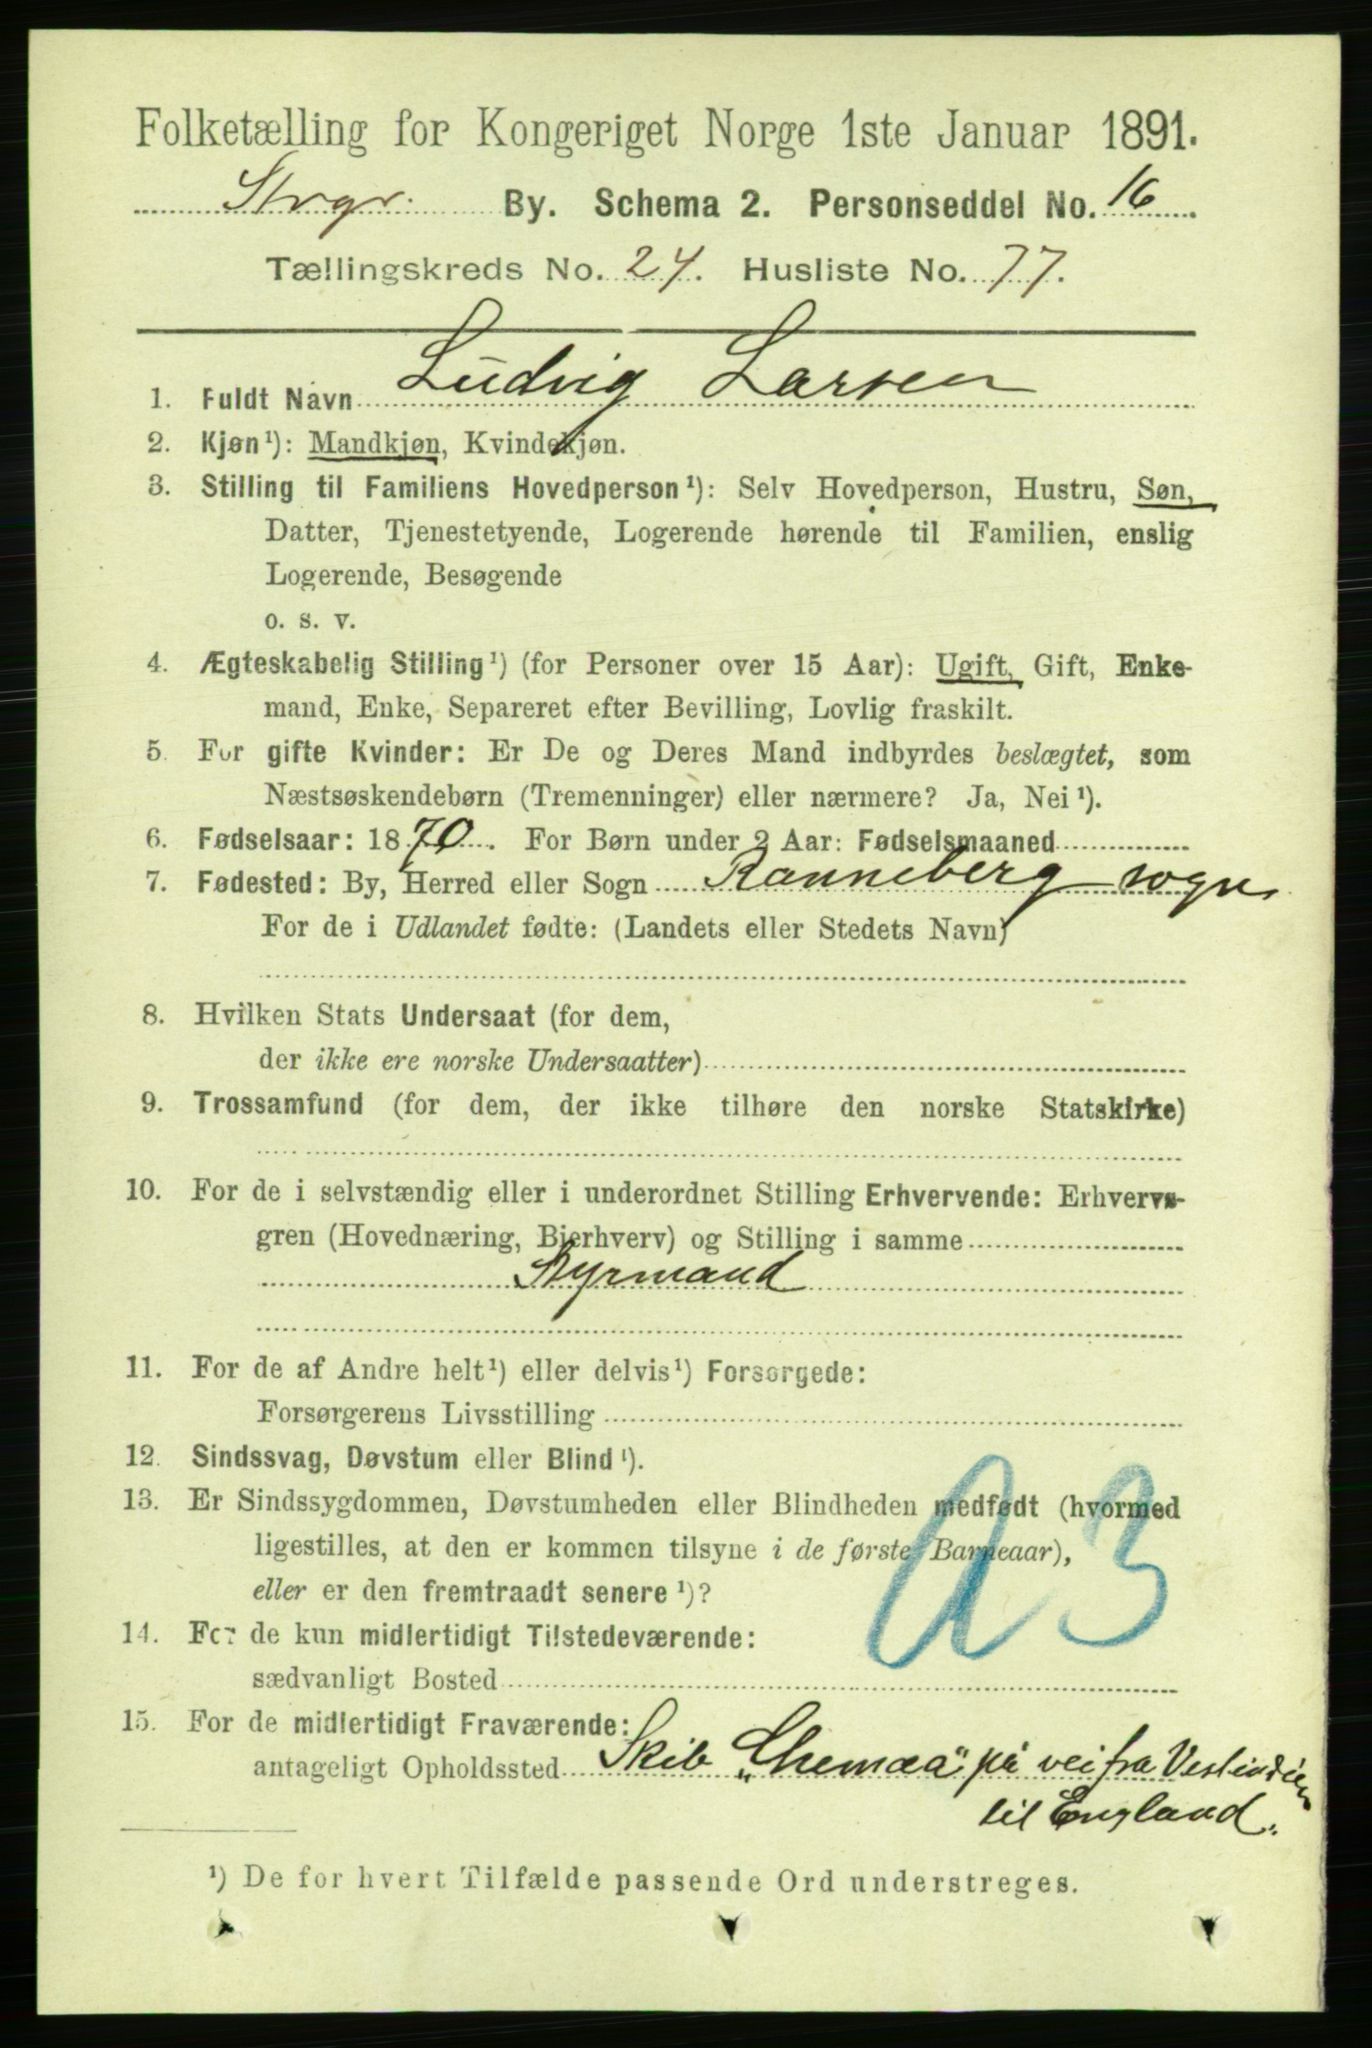 Folketælling for Kongeriget Norge 1ste Januar 1891.
Stvgr. By. Schema 2. Personseddel No. 16
Tællingskreds No. 24. Husliste No. 77.
1. Fuldt Navn Ludvig Larsen
2. Kjøn¹): Mandkjøn, Kvindekjøn.
3. Stilling til Familiens Hovedperson¹): Selv Hovedperson, Hustru, Søn,
Datter, Tjenestetyende, Logerende hørende til Familien, enslig
Logerende, Besøgende
o. s. v.
4. Ægteskabelig Stilling¹) (for Personer over 15 Aar): Ugift, Gift, Enke-
mand, Enke, Separeret efter Bevilling, Lovlig fraskilt.
5. For gifte Kvinder: Er De og Deres Mand indbyrdes beslægtet, som
Næstsøskendebørn (Tremenninger) eller nærmere? Ja, Nei¹).
6. Fødselsaar: 1870. For Børn under 2 Aar: Fødselsmaaned
7. Fødested: By, Herred eller Sogn Ranneberg sogn
For de i Udlandet fødte: (Landets eller Stedets Navn)
8. Hvilken Stats Undersaat (for dem,
der ikke ere norske Undersaatter)
9. Trossamfund (for dem, der ikke tilhøre den norske Statskirke)
10. For de i selvstændig eller i underordnet Stilling Erhvervende: Erhvervs-
gren (Hovednæring, Bierhverv) og Stilling i samme
Styrmand
11. For de af Andre helt¹) eller delvis¹) Forsørgede:
Forsørgerens Livsstilling
12. Sindssvag, Døvstum eller Blind¹).
13. Er Sindssygdommen, Døvstumheden eller Blindheden medfødt (hvormed
ligestilles, at den er kommen tilsyne i de første Barneaar),
eller er den fremtraadt senere¹)?
14. For de kun midlertidigt Tilstedeværende:
sædvanligt Bosted
15. For de midlertidigt Fraværende:
antageligt Opholdssted Skib på vei fra Vestindien
til England.
¹) De for hvert Tilfælde passende Ord understreges.